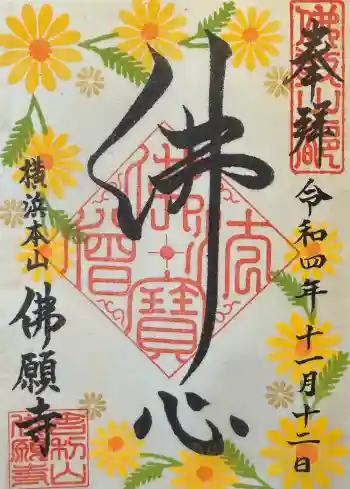 奉拝
令和四年十一月十二日
佛心
横浜本山
佛願寺
佛法僧寶